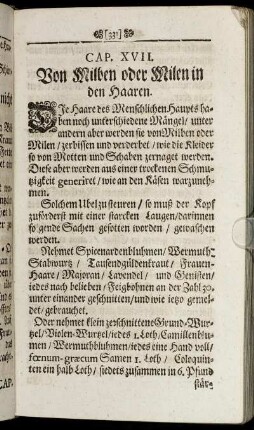 (331)
CAP. XVII.
Von Milben oder Milen in
den Haaren.
DIe Haare des Menschlichen Haupts ha-
ben noch unterschiedene Mängel / unter
andern aber werden sie von Milben oder
Milen / zerbissen und verderbet / wie die Kleider
so von Motten und Schaben zernaget werden.
Diese aber werden aus einer trockenen Schmu-
tzigkeit generiret / wie an den Käsen warzuneh-
men.
Solchem Ubel zusteuren / so muß der Kopf
zuförderst mit einer starcken Laugen / darinnen
folgende Sachen gesotten worden / gewaschen
werden.
Nehmet Spicenardenbluhmen / Wermuth /
Stabwurtz / Tausendgüldenkraut / Frauen-
Haare / Majoran / Lavendel / und Genisten /
iedes nach belieben / Feigbohnen an der Zahl 30.
unter einander geschnitten / und wie ietzo gemel-
det / gebrauchet.
Oder nehmet klein zerschnittene Grind-Wur-
tzel / Violen-Wurtzel / iedes 1. Loth / Camillenblu-
men / Wermuthbluhmen / iedes eine Hand voll /
fœnum-græcum Samen 1. Loth / Coloquin-
ten ein halb Loth / siedets zusammen in 6. Pfund
CAP.